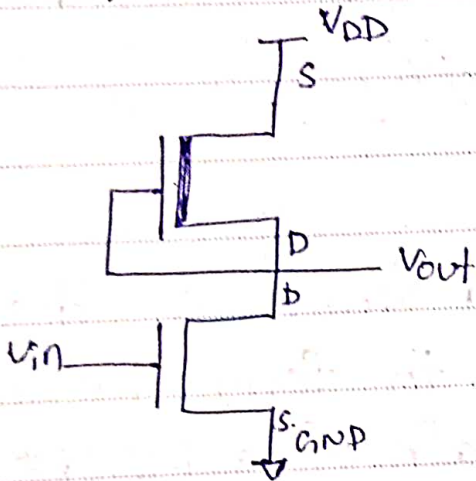 VDD
S
D
Vout
D
Vin
S.
GND